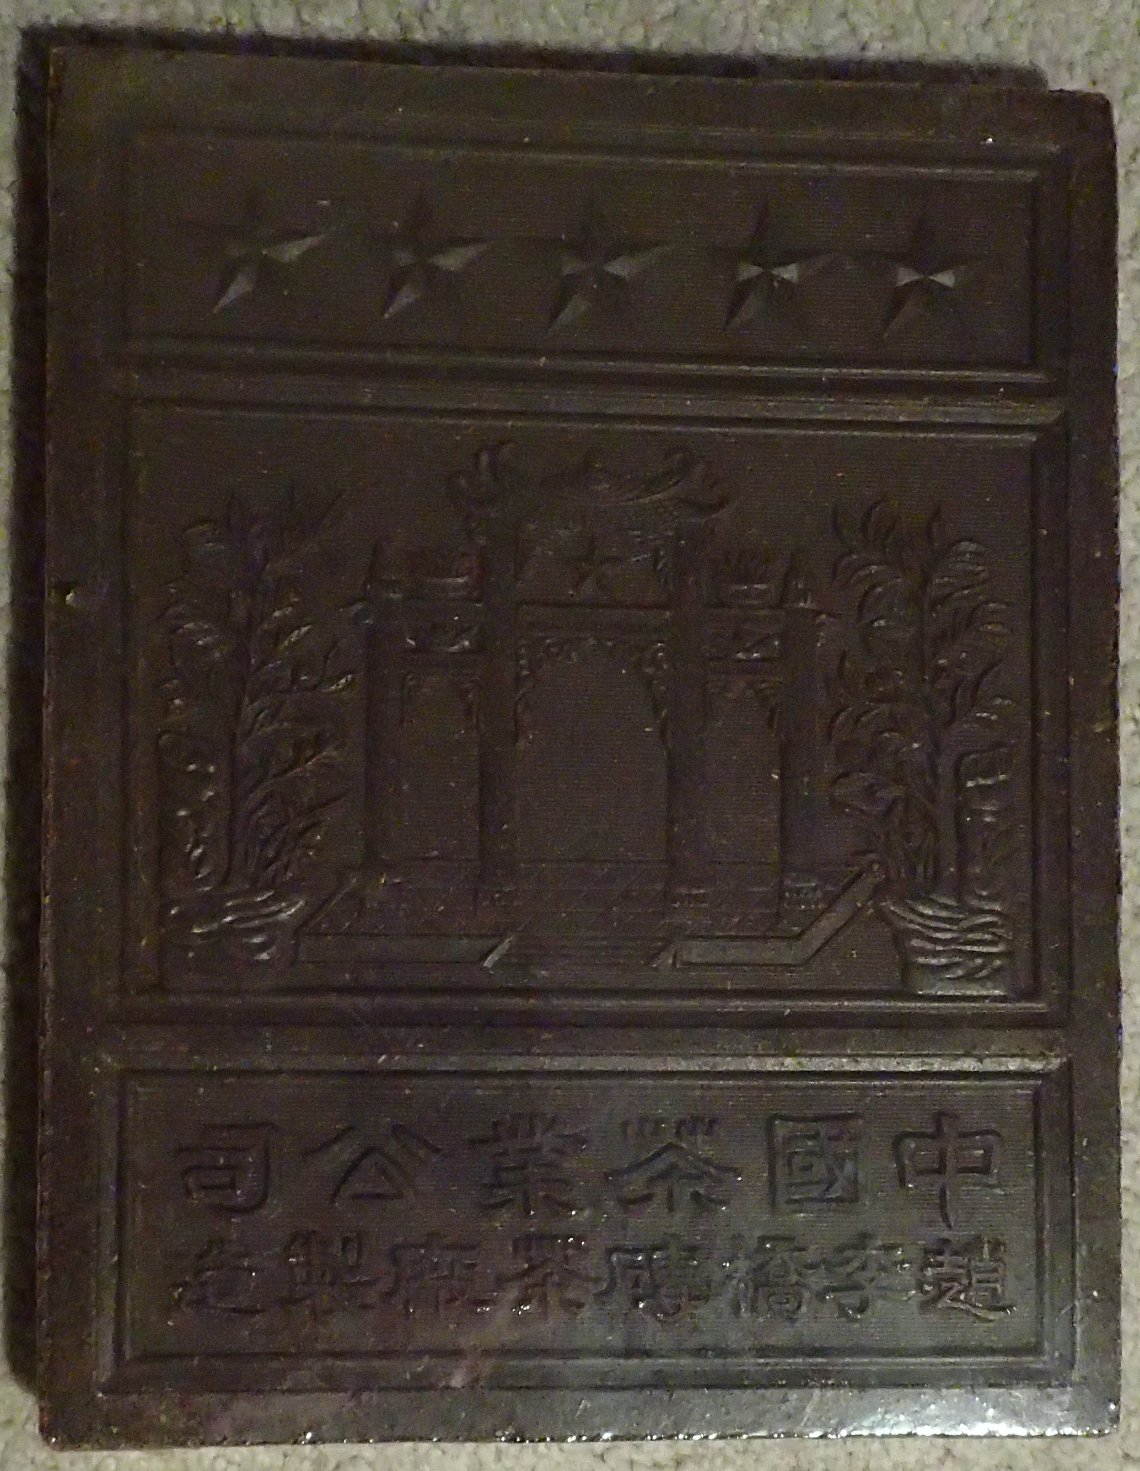 中國茶業公司
趙李橋磚茶廠製造